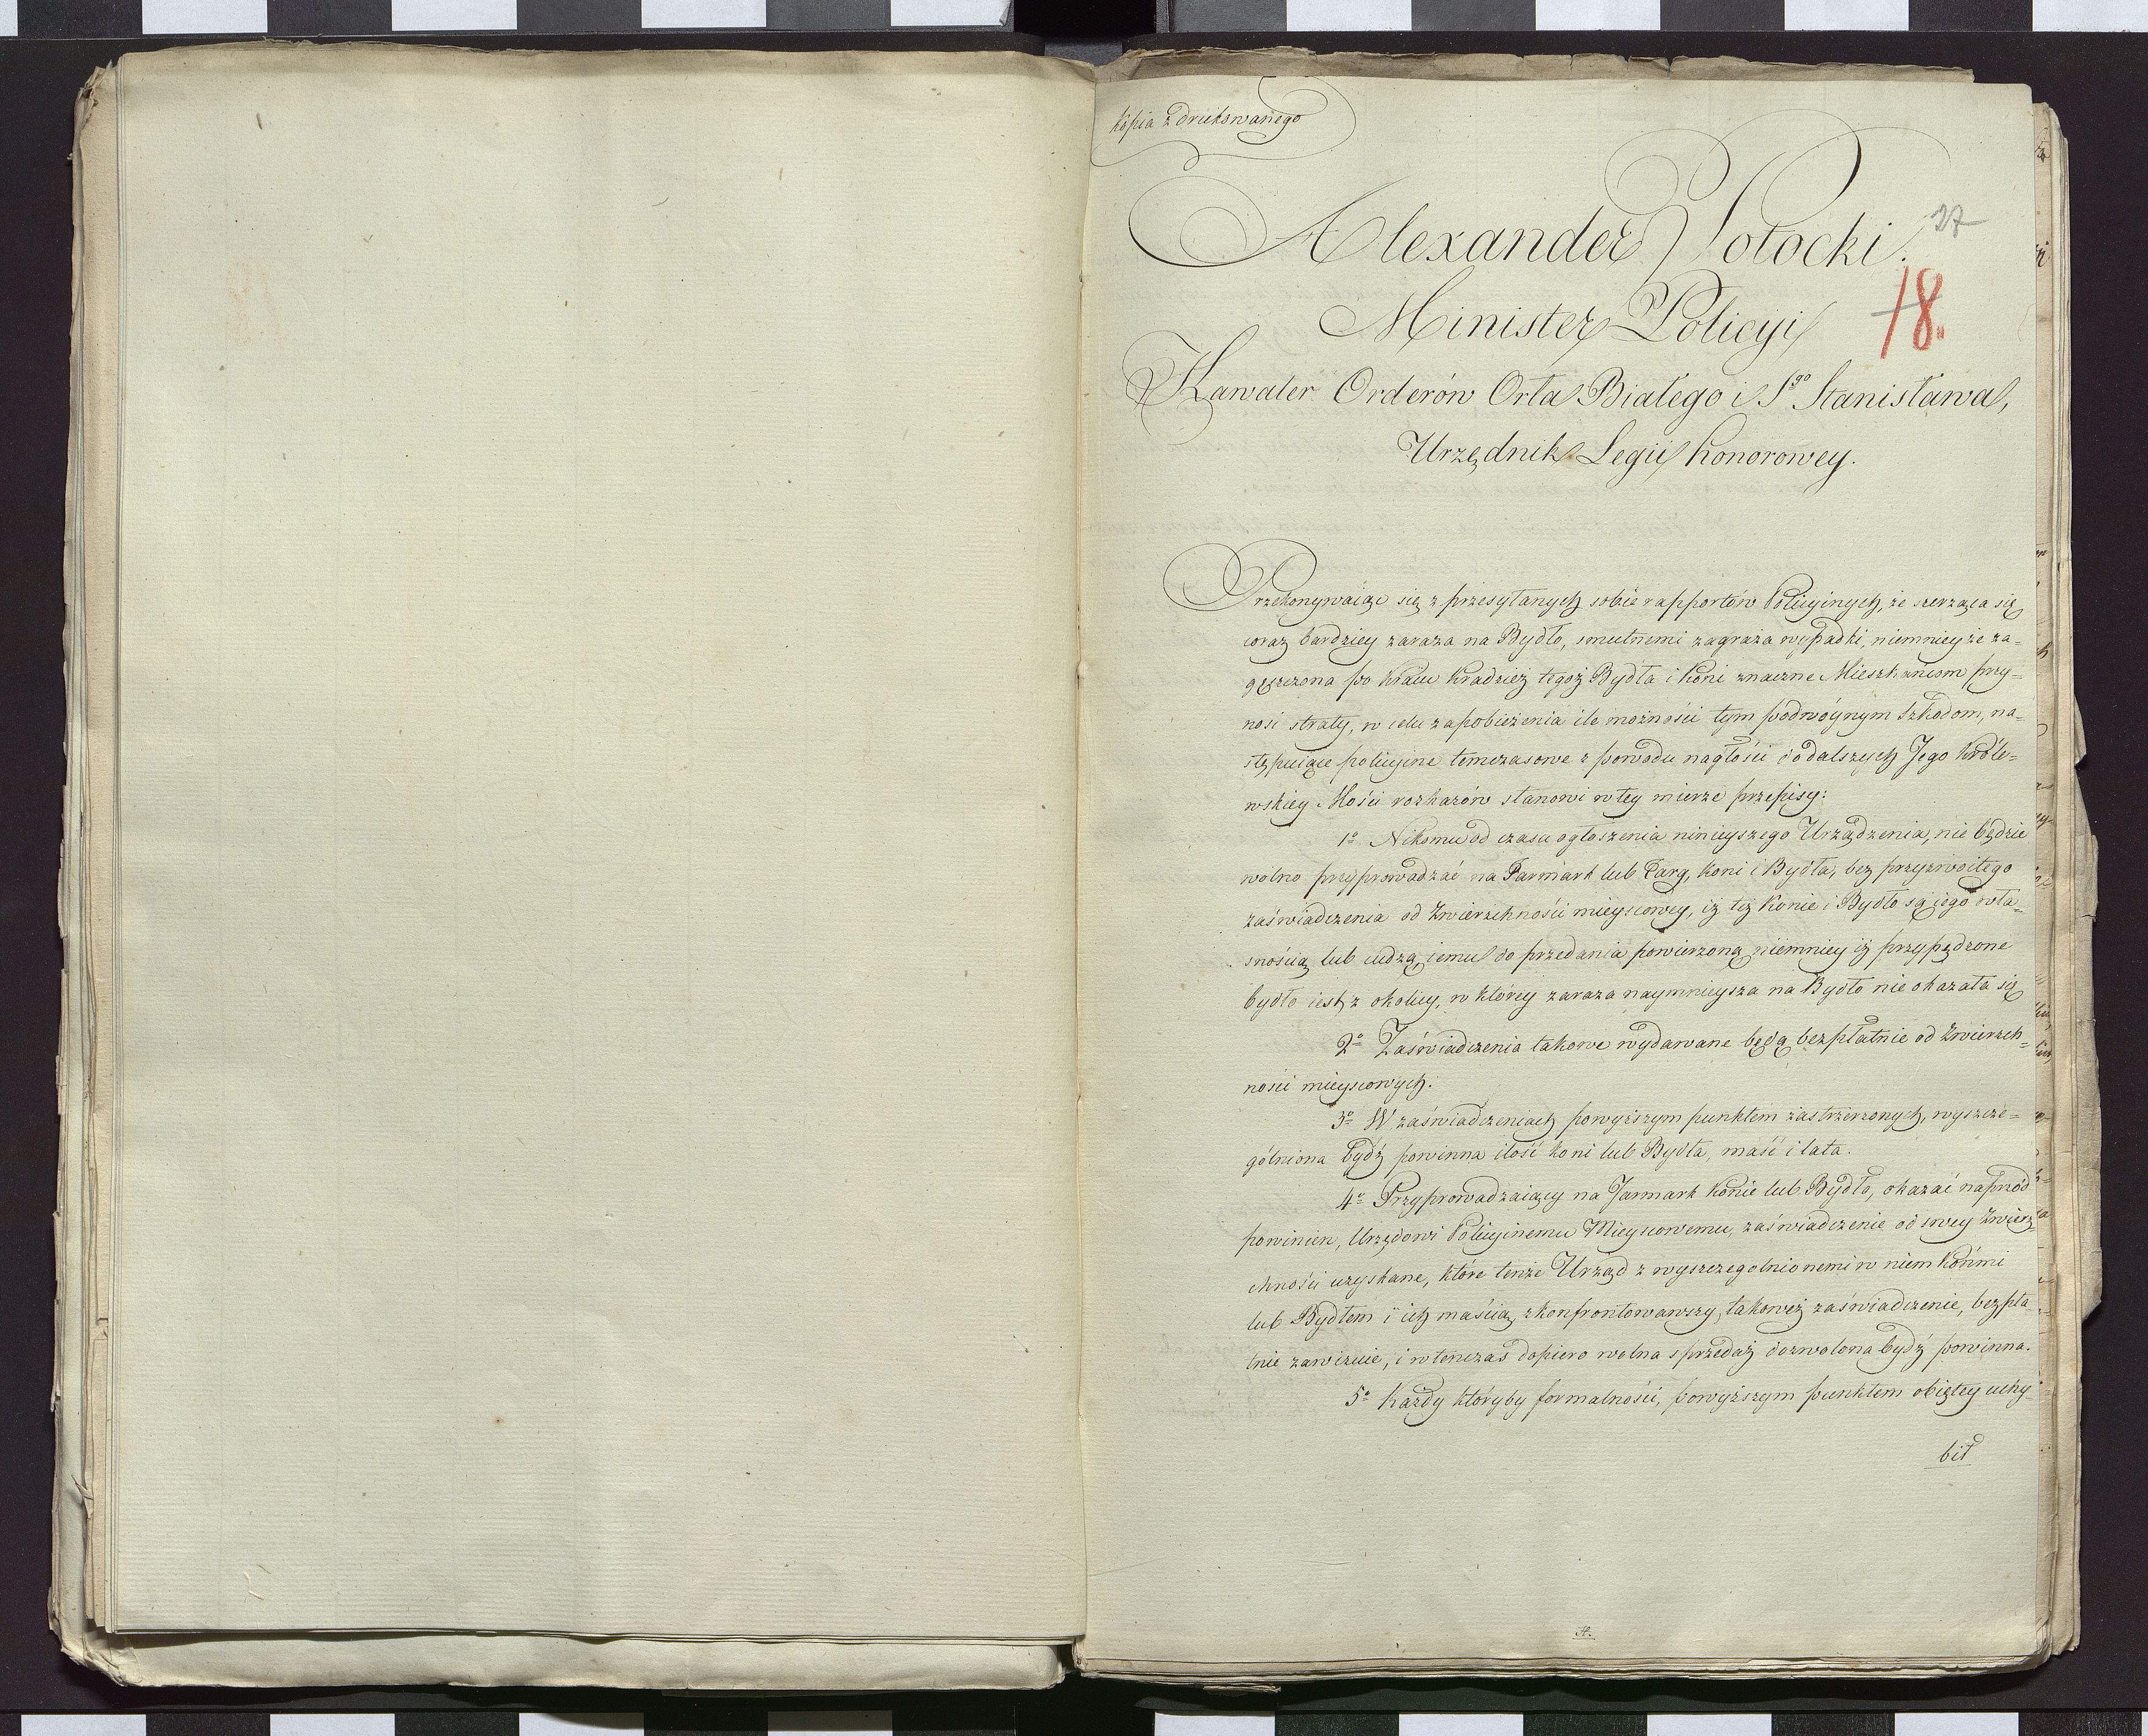 kopia z drukowanego
Alexander Potocki.
27
Minister Policyi
18.
Kawaler Orderów Orła Białego i Sgo Stanisława,
Urzędnik Legii honorowey.
Przekonywaiąc się z przesyłanych sobie rapportów Policyinych, że szerząca się
coraz bardziey zaraza na Bydło, smutnemi zagraża wypadki, niemniey że za=
gęszczona po kraiu kradzież tegoż Bydła i koni znaczne Mieszkańcom przy=
nosi straty, w celu zapobieżenia ile możności tym podwóynym szkodom, na=
stępuiące policyine tymczasowe z powodu nagłości do dalszych Jego Króle=
wskiey Mości rozkazów stanowi w tey mierze przepisy:
1o Nikomu od czasu ogłoszenia ninieyszego Urządzenia, nie będzie
wolno przyprowadzać na Jarmark lub Targ, koni i Bydła, bez przyzwoitego
zaświadczenia od Zwierzchności mieyscowey, iż też konie i Bydło są iego wła=
snością lub cudzą, iemu do przedania powierzoną niemniey iż przypędzone
bydło iest z okolicy, w którey zaraza naymnieysza na Bydło nie okazała się
2o Zaświadczenia takowe wydawane będą bezpłatnie od Zwierzch=
ności mieyscowych.
3o W zaświadczeniach powyższym punktem zastrzeżonych, wyszcze=
gólniona bydź powinna ilość koni lub Bydła, maść i lata.
4o Przyprowadzaiący na Jarmark konie lub Bydło, okazać naprzód
powinien, Urzędowi Policyinemu Mieyscowemu, zaświadczenie od swey Zwierz=
chności uzyskane, które tenże Urząd z wyszczegolnionemi w niem końmi
lub Bydłem i ich maścią, skonfrontowawszy, takoweż zaświadczenie, bezpła
tnie zawizuie, i wtenczas dopiero wolna sprzedaż dozwolona bydź powinna.
5o Każdy któryby formalności, powyższym punktem obiętey uchy=
bił